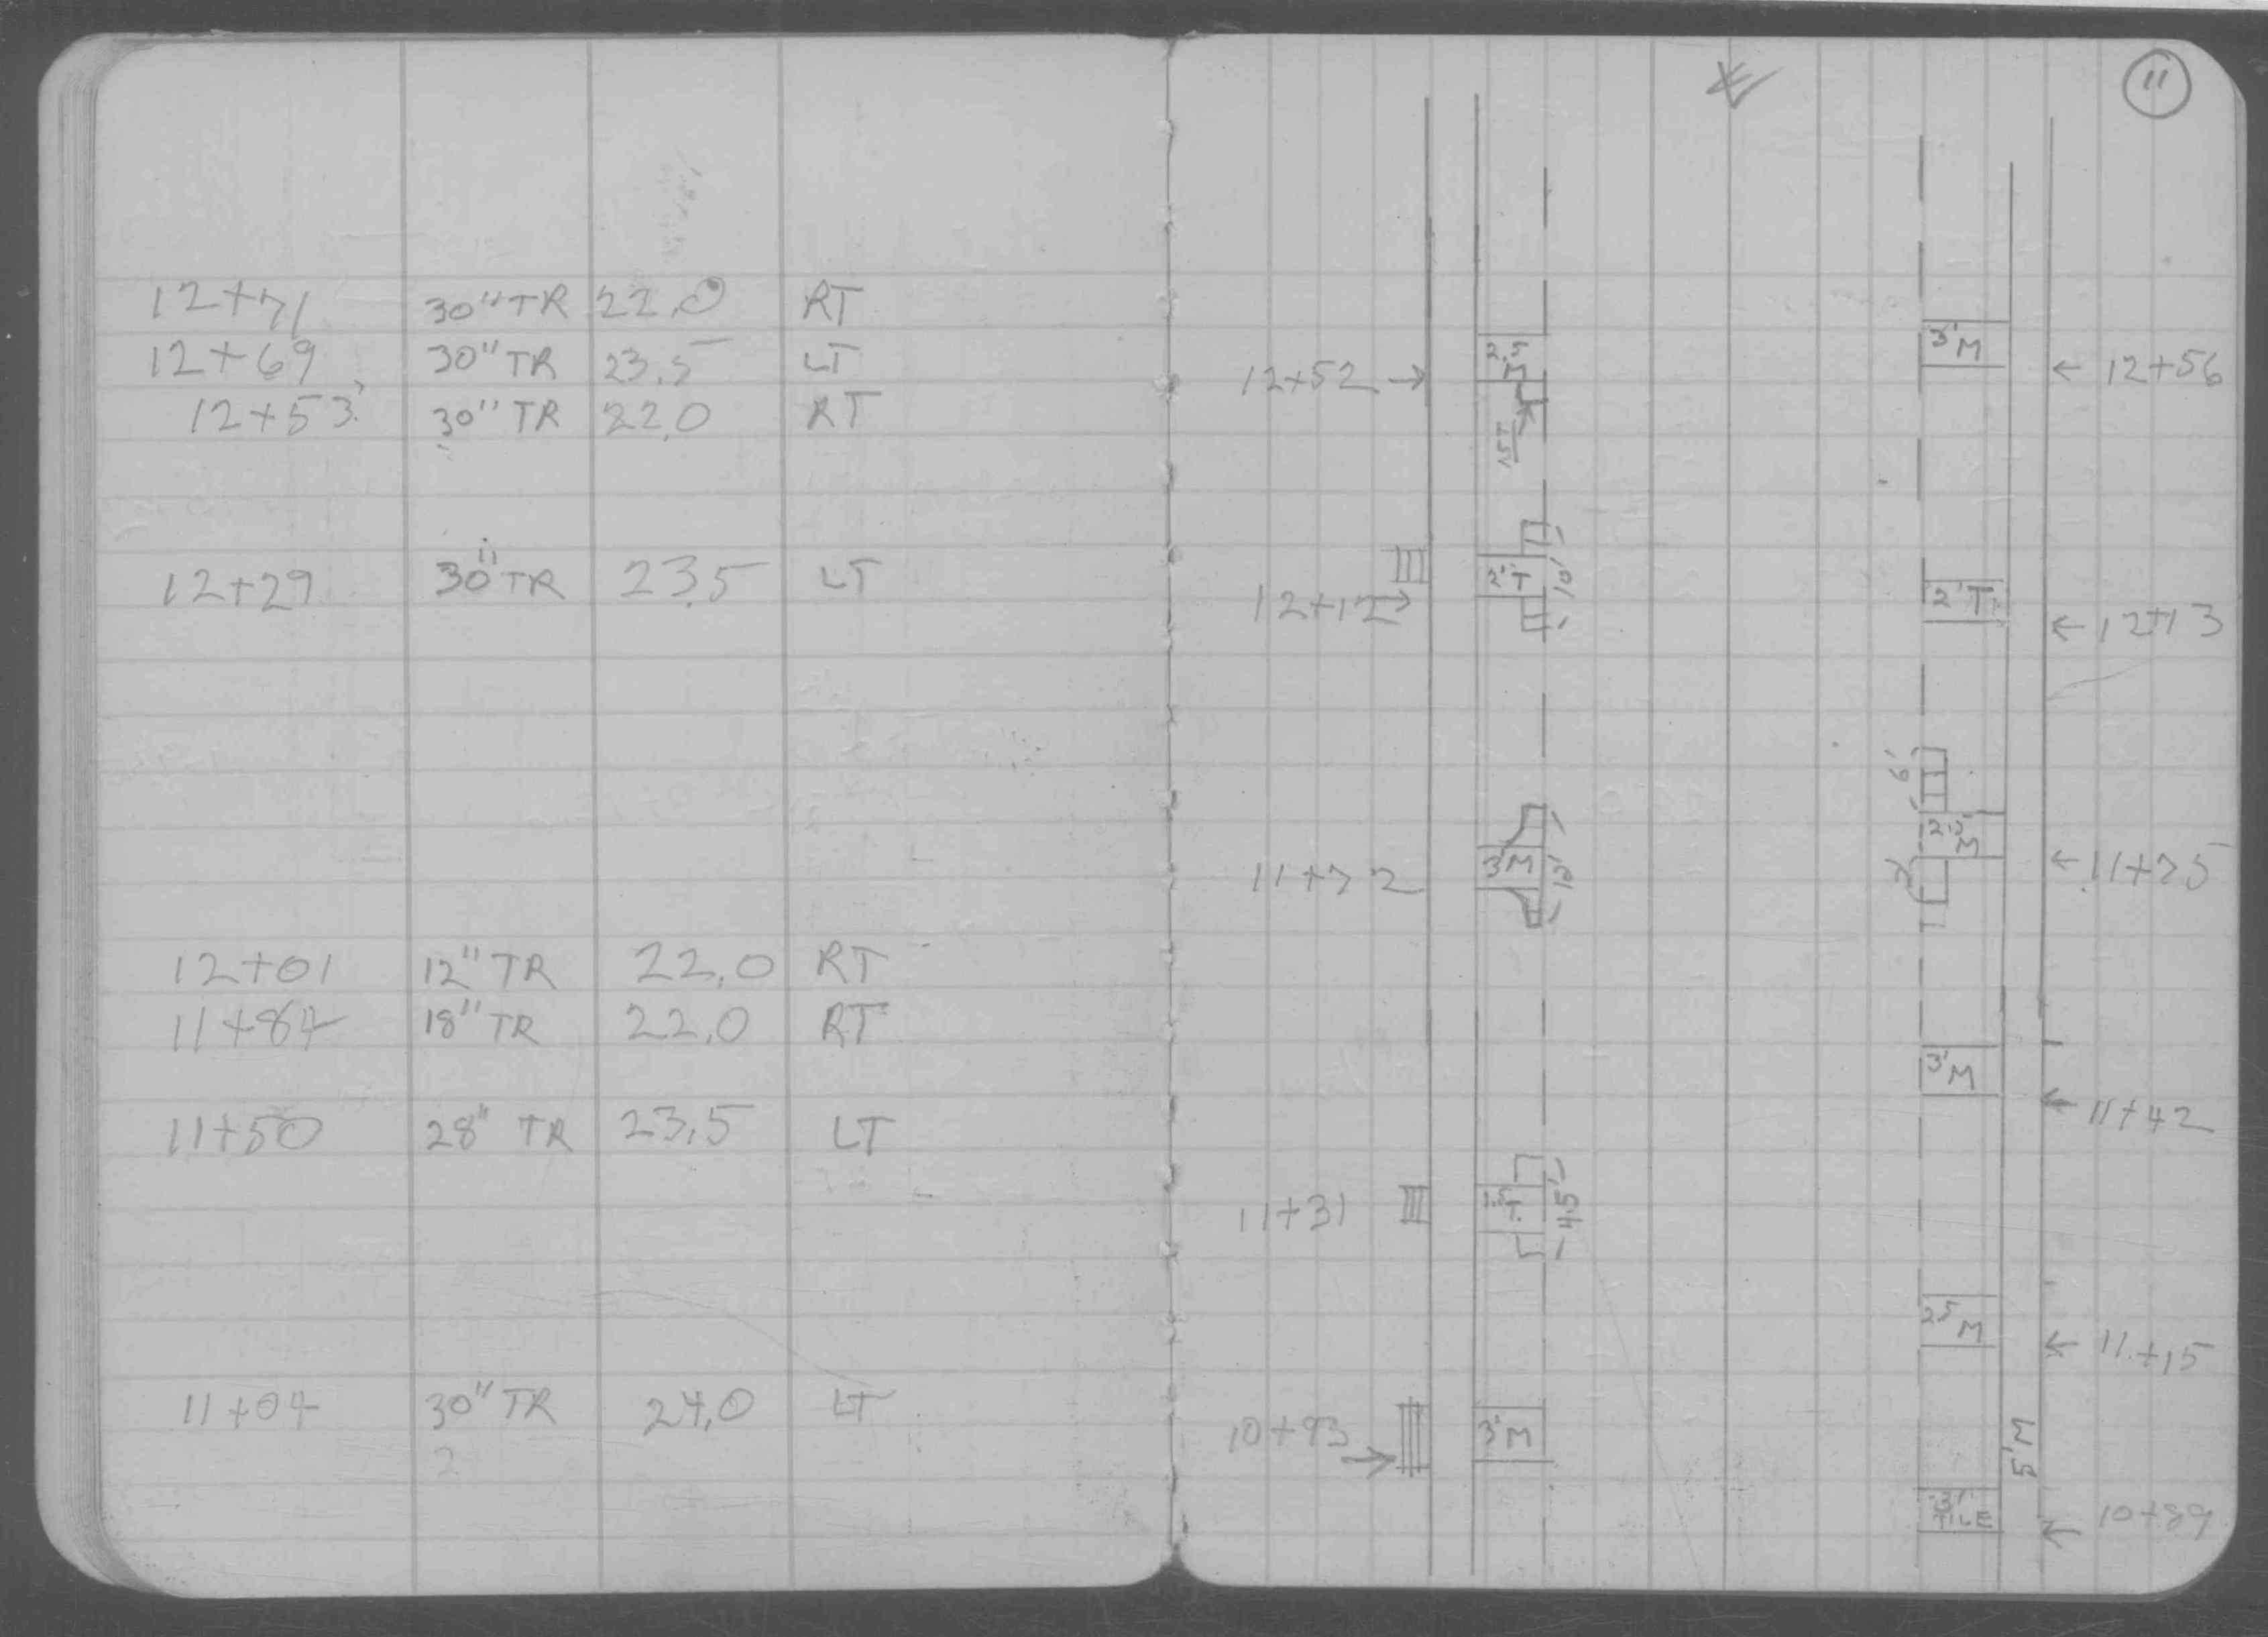 12+71 30" TR 22.0 RT
12+69 30" TR 23.5 LT
12+53 30" TR 22.0 RT
12+29 30" TR 23.5 LT
12+01 12" TR 22.0 RT
11+84 18" TR 22.0 RT
11+50 28" TR 23.5 LT
11+04 30" TR 24.0 LT
11
12+52 → 2.5 M
3' M ← 12+56
10'
12+12 → 2' T
2' T ← 12+13
6'
11+72 3' M 12'
2.5' M ← 11+75
3' M
← 11+42
11+31 1.5' T. 4.5'
2.5 M ← 11+15
10+93 → 3' M
5' M
3' TILE ← 10+89